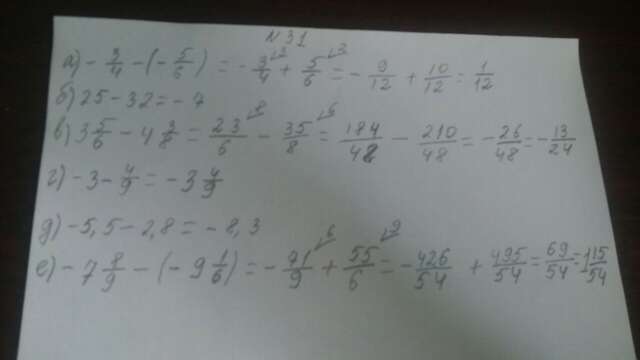 N31
а) - 3/4 - (- 5/6) = - 3/4 + 5/6 = - 9/12 + 10/12 = 1/12
б) 25 - 32 = - 7
в) 3 5/6 - 4 3/8 = 23/6 - 35/8 = 184/48 - 210/48 = - 26/48 = - 13/24
г) - 3 - 4/9 = - 3 4/9
д) - 5,5 - 2,8 = - 8,3
е) - 7 8/9 - (- 9 1/6) = - 71/9 + 55/6 = - 426/54 + 495/54 = 69/54 = 1 15/54